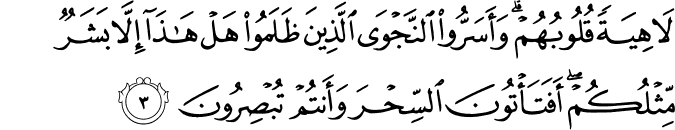 لَاهِيَةً قُلُوبُهُمْ ۗ وَأَسَرُّوا۟ ٱلنَّجْوَى ٱلَّذِينَ ظَلَمُوا۟ هَلْ هَـٰذَآ إِلَّا بَشَرٌۭ
مِّثْلُكُمْ ۖ أَفَتَأْتُونَ ٱلسِّحْرَ وَأَنتُمْ تُبْصِرُونَ ٣